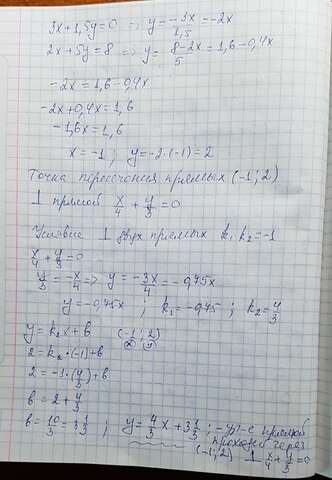 3x+1,5y=0 ⇒ y = -3x/1,5 = -2x
2x+5y=8 ⇒ y = 8-2x/5 = 1,6-0,4x
-2x = 1,6-0,4x
-2x+0,4x = 1,6
-1,6x = 1,6
x = -1 ; y = -2·(-1) = 2
Точка пересечения прямых (-1; 2)
⊥ прямой x/4 + y/3 = 0
Условие ⊥ двух прямых k₁k₂=-1
x/4 + y/3 = 0
y/3 = -x/4 ⇒ y = -3x/4 = -0,75x
y = -0,75x ; k₁ = -0,75 ; k₂ = 4/3
y = k₂x + b (-1; 2)
x y
2 = k₂·(-1)+b
2 = -1·(4/3)+b
b = 2 + 4/3
b = 10/3 = 3 1/3 ; y = 4/3 x + 3 1/3 ; -ур-е прямой
проходящ через
(-1; 2) ⊥ x/4 + y/3 = 0